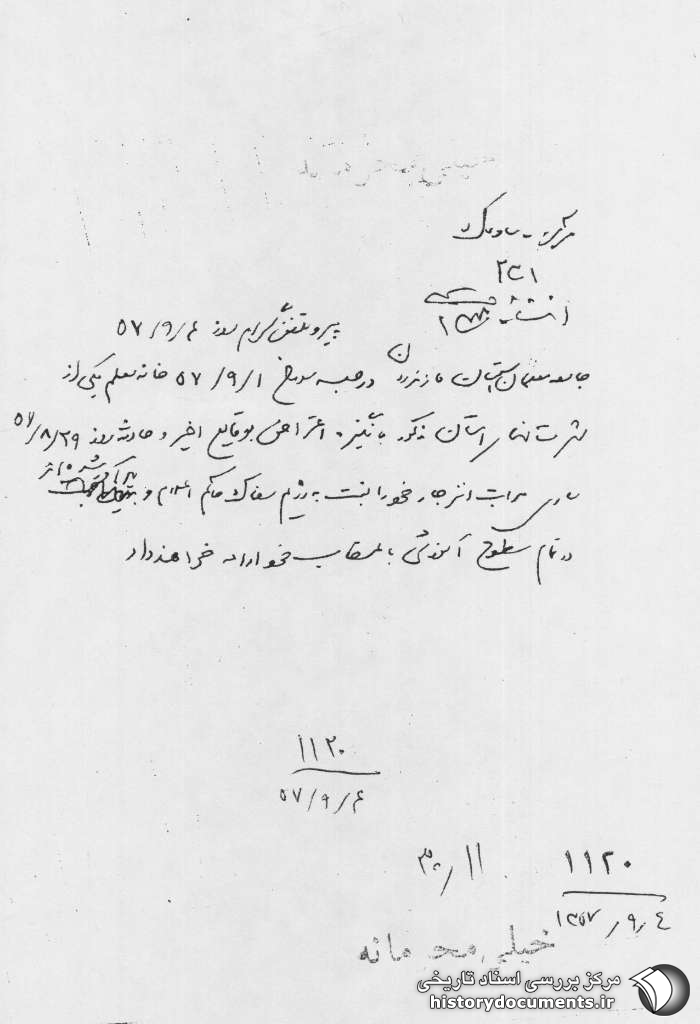 مرکز - ساواک
۳۴۱
پیرو تلفنگرام روز ۵۷/۹/۴
جامعه معلمان استان مازندران در جلسه مورخ ۵۷/۹/۱ خانه معلم یکی از
شهرستانهای استان مذکور با انگیزه اعتراض بوقایع اخیر و حادثه روز ۵۷/۸/۲۹
ساری مراتب انزجار خود را نسبت به رژیم سفاک حاکم اعلام و
در تمام سطوح آموزشی با اعتصاب خود ادامه خواهند داد
۱۱۲۰
۵۷/۹/۴
۱۱۲۰
۱۳۵۷/۹/۴
خیلی محرمانه
مرکز بررسی اسناد تاریخی
historydocuments.ir